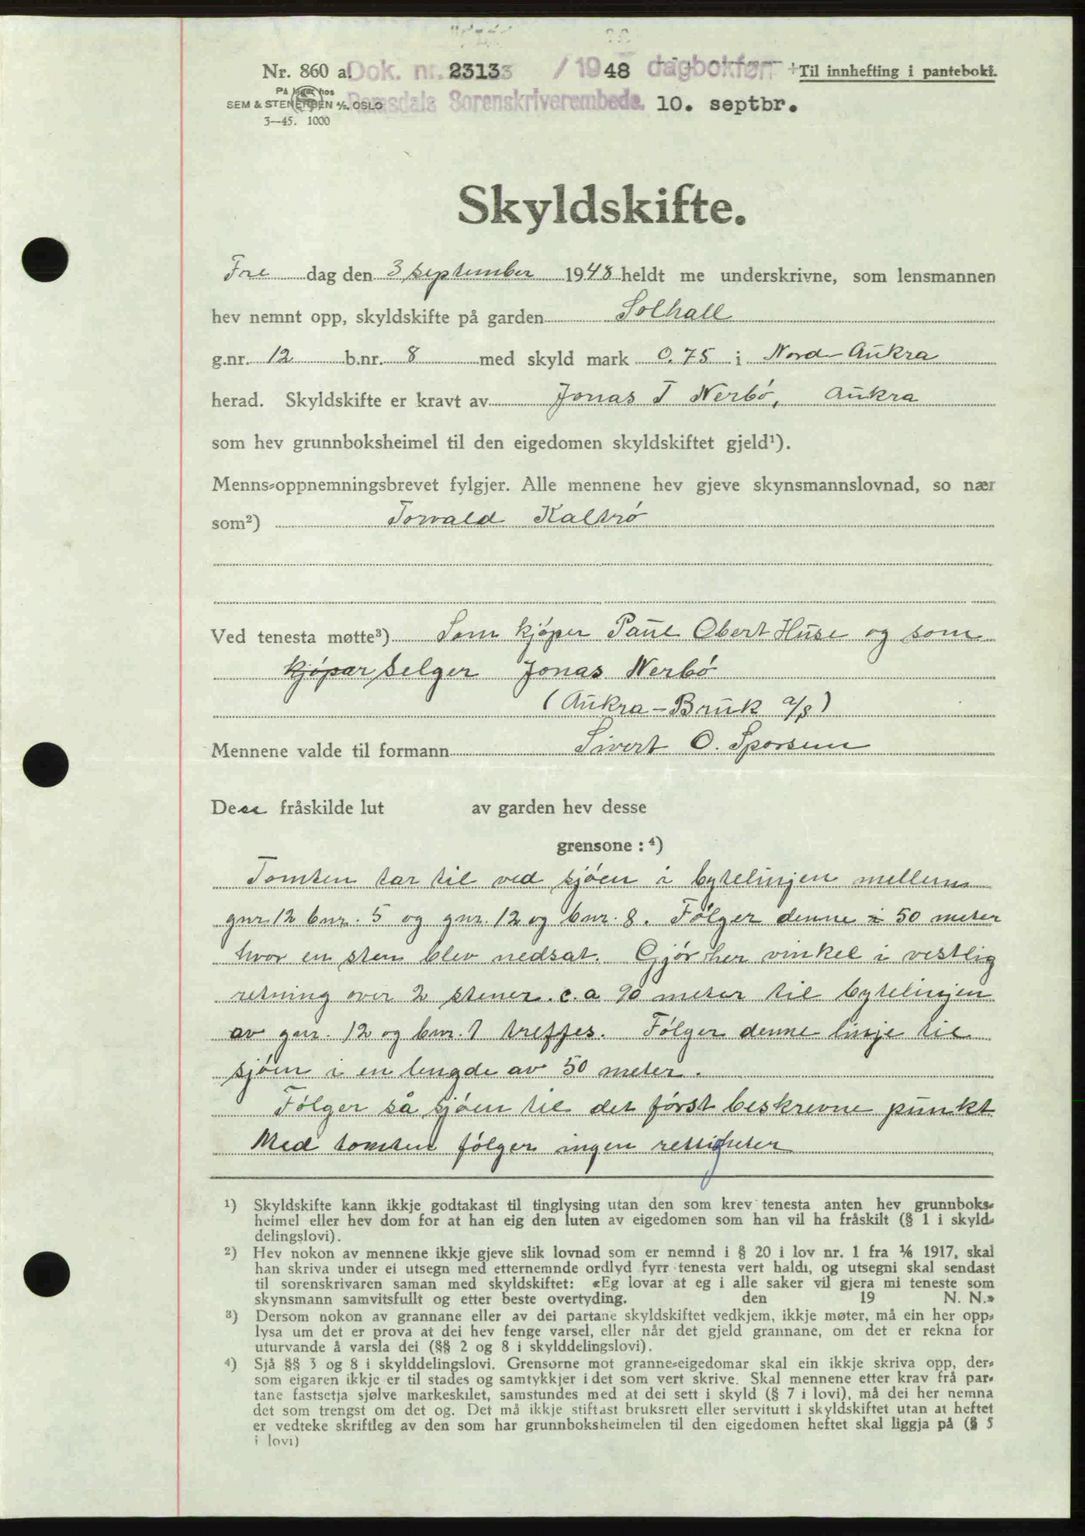 Nr. 860 a. Dok. nr. 2313 / 1948 dagbokført Til innhefting i panteboki.
På lager hos
SEM & STENERSEN A/S. OSLO Romsdals Sorenskriverembede. 10. septbr.
3—45. 1000
Skyldskifte.
Fre dag den 3 september 1948 heldt me underskrivne, som lensmannen
hev nemnt opp, skyldskifte på garden Solhall
g.nr. 12 b.nr. 8 med skyld mark 0.75 i Nord-Aukra
herad. Skyldskifte er kravt av Jonas T Nerbö, Aukra
som hev grunnboksheimel til den eigedomen skyldskiftet gjeld¹).
Menns-oppnemningsbrevet fylgjer. Alle mennene hev gjeve skynsmannslovnad, so nær
som²) Torvald Kaltrö
Ved tenesta møtte³) Som kjöper Paul Obert Huse og som
kjöpar Selger Jonas Nerbö
(Aukra-Bruk a/s)
Mennene valde til formann Sivert O. Sporsem
Dess fråskilde lut av garden hev desse
grensone : ⁴)
Tomten tar til ved sjöen i bytelinjen mellem
gnr. 12 bnr. 5 og gnr. 12 og bnr. 8. Fölger denne i 50 meter
hvor en sten blev nedsat. Gjör her vinkel i vestlig
retning over 2 stener c.a 90 meter til bytelinjen
av gnr. 12 og bnr. 1 treffes. Fölger denne linje til
sjöen i en lengde av 50 meter.
Fölger så sjöen til det först beskrevne punkt
Med tomten fölger ingen rettigheter
¹) Skyldskifte kann ikkje godtakast til tinglysing utan den som krev tenesta anten hev grunnboks-
heimel eller hev dom for at han eig den luten av eigedomen som han vil ha fråskilt (§ 1 i skyld-
delingslovi).
²) Hev nokon av mennene ikkje gjeve slik lovnad som er nemnd i § 20 i lov nr. 1 fra ⅙ 1917, skal
han skriva under ei utsegn med etternemnde ordlyd fyrr tenesta vert haldi, og utsegni skal sendast
til sorenskrivaren saman med skyldskiftet: «Eg lovar at eg i alle saker vil gjera mi teneste som
skynsmann samvitsfullt og etter beste overtyding. den 19 N. N.»
³) Dersom nokon av grannane eller av dei partane skyldskiftet vedkjem, ikkje møter, må ein her opp-
lysa um det er prova at dei hev fenge varsel, eller når det gjeld grannane, om det er rekna for
uturvande å varsla dei (§§ 2 og 8 i skylddelingslovi).
⁴) Sjå §§ 3 og 8 i skylddelingslovi. Grensorne mot granne-eigedomar skal ein ikkje skriva opp, der-
som eigaren ikkje er til stades og samtykkjer i det som vert skrive. Skal mennene etter krav frå par-
tane fastsetja sjølve markeskilet, samstundes med at dei sett i skyld (§ 7 i lovi), må dei her nemna
det som trengst om det og. Det må ikkje stiftast bruksrett eller servitutt i skyldskiftet utan at heftet
er vedteke skriftleg av den som har grunnboksheimelen til den eigedomen heftet skal liggja på (§ 5
i lovi)